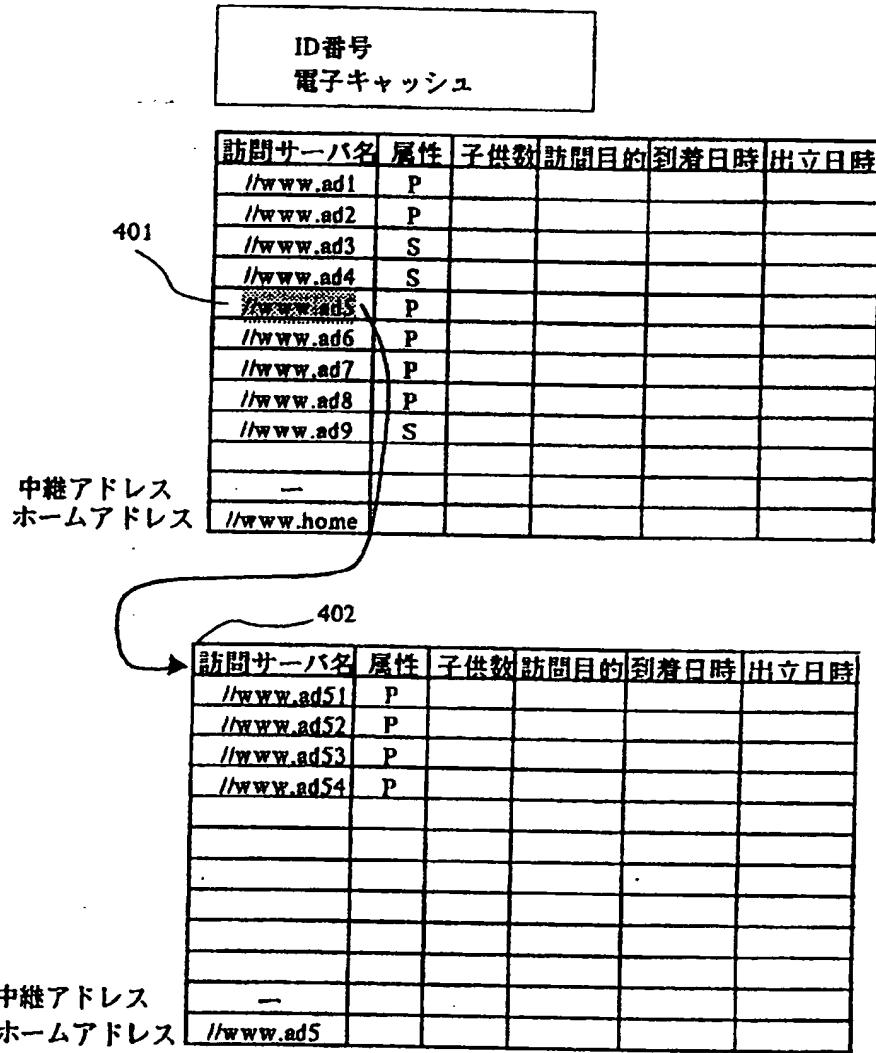 ID番号
電子キャッシュ
訪問サーバ名 属性 子供数 訪問目的 到着日時 出立日時
//www.ad1 P
//www.ad2 P
401
//www.ad3 S
//www.ad4 S
//www.ad5 P
//www.ad6 P
//www.ad7 P
//www.ad8 P
//www.ad9 S
中継アドレス —
ホームアドレス //www.home
402
訪問サーバ名 属性 子供数 訪問目的 到着日時 出立日時
//www.ad51 P
//www.ad52 P
//www.ad53 P
//www.ad54 P
中継アドレス —
ホームアドレス //www.ad5